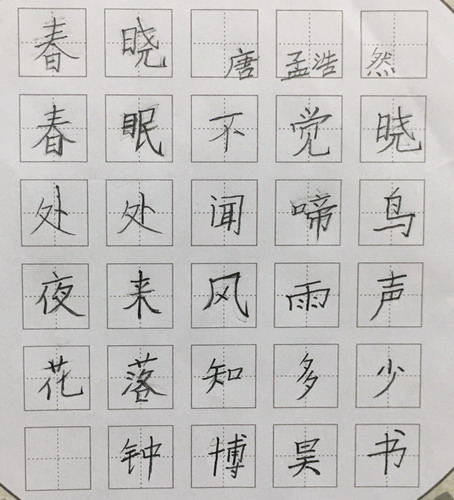 春晓 唐 孟浩然
春眠不觉晓
处处闻啼鸟
夜来风雨声
花落知多少
钟博昊书